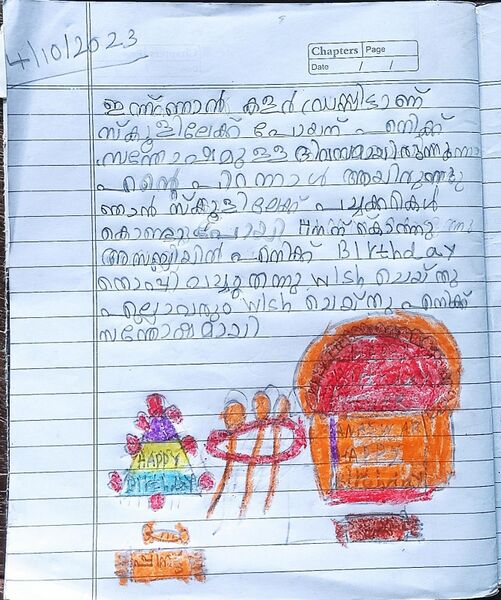 4/10/2023
Chapters Page
Date / /
ഇന്ന് ഞാൻ കളർ ഡ്രസ്സിട്ടാണ്
സ്കൂളിലേക്ക് പോയത് എനിക്ക്
സന്തോഷമുള്ള ദിവസമായിരുന്നു
എന്റെ പിറന്നാൾ ആയിരുന്നു
ഞാൻ സ്കൂളിലേക്ക് പച്ചക്കറികൾ
കൊണ്ടുപോയി
അസംബ്ലിയിൽ എനിക്ക് Birthday
തൊപ്പി വച്ചു തന്നു wish ചെയ്തു
എല്ലാവരും wish ചെയ്തു എനിക്ക്
സന്തോഷമായി
HAPPY
HAPPY